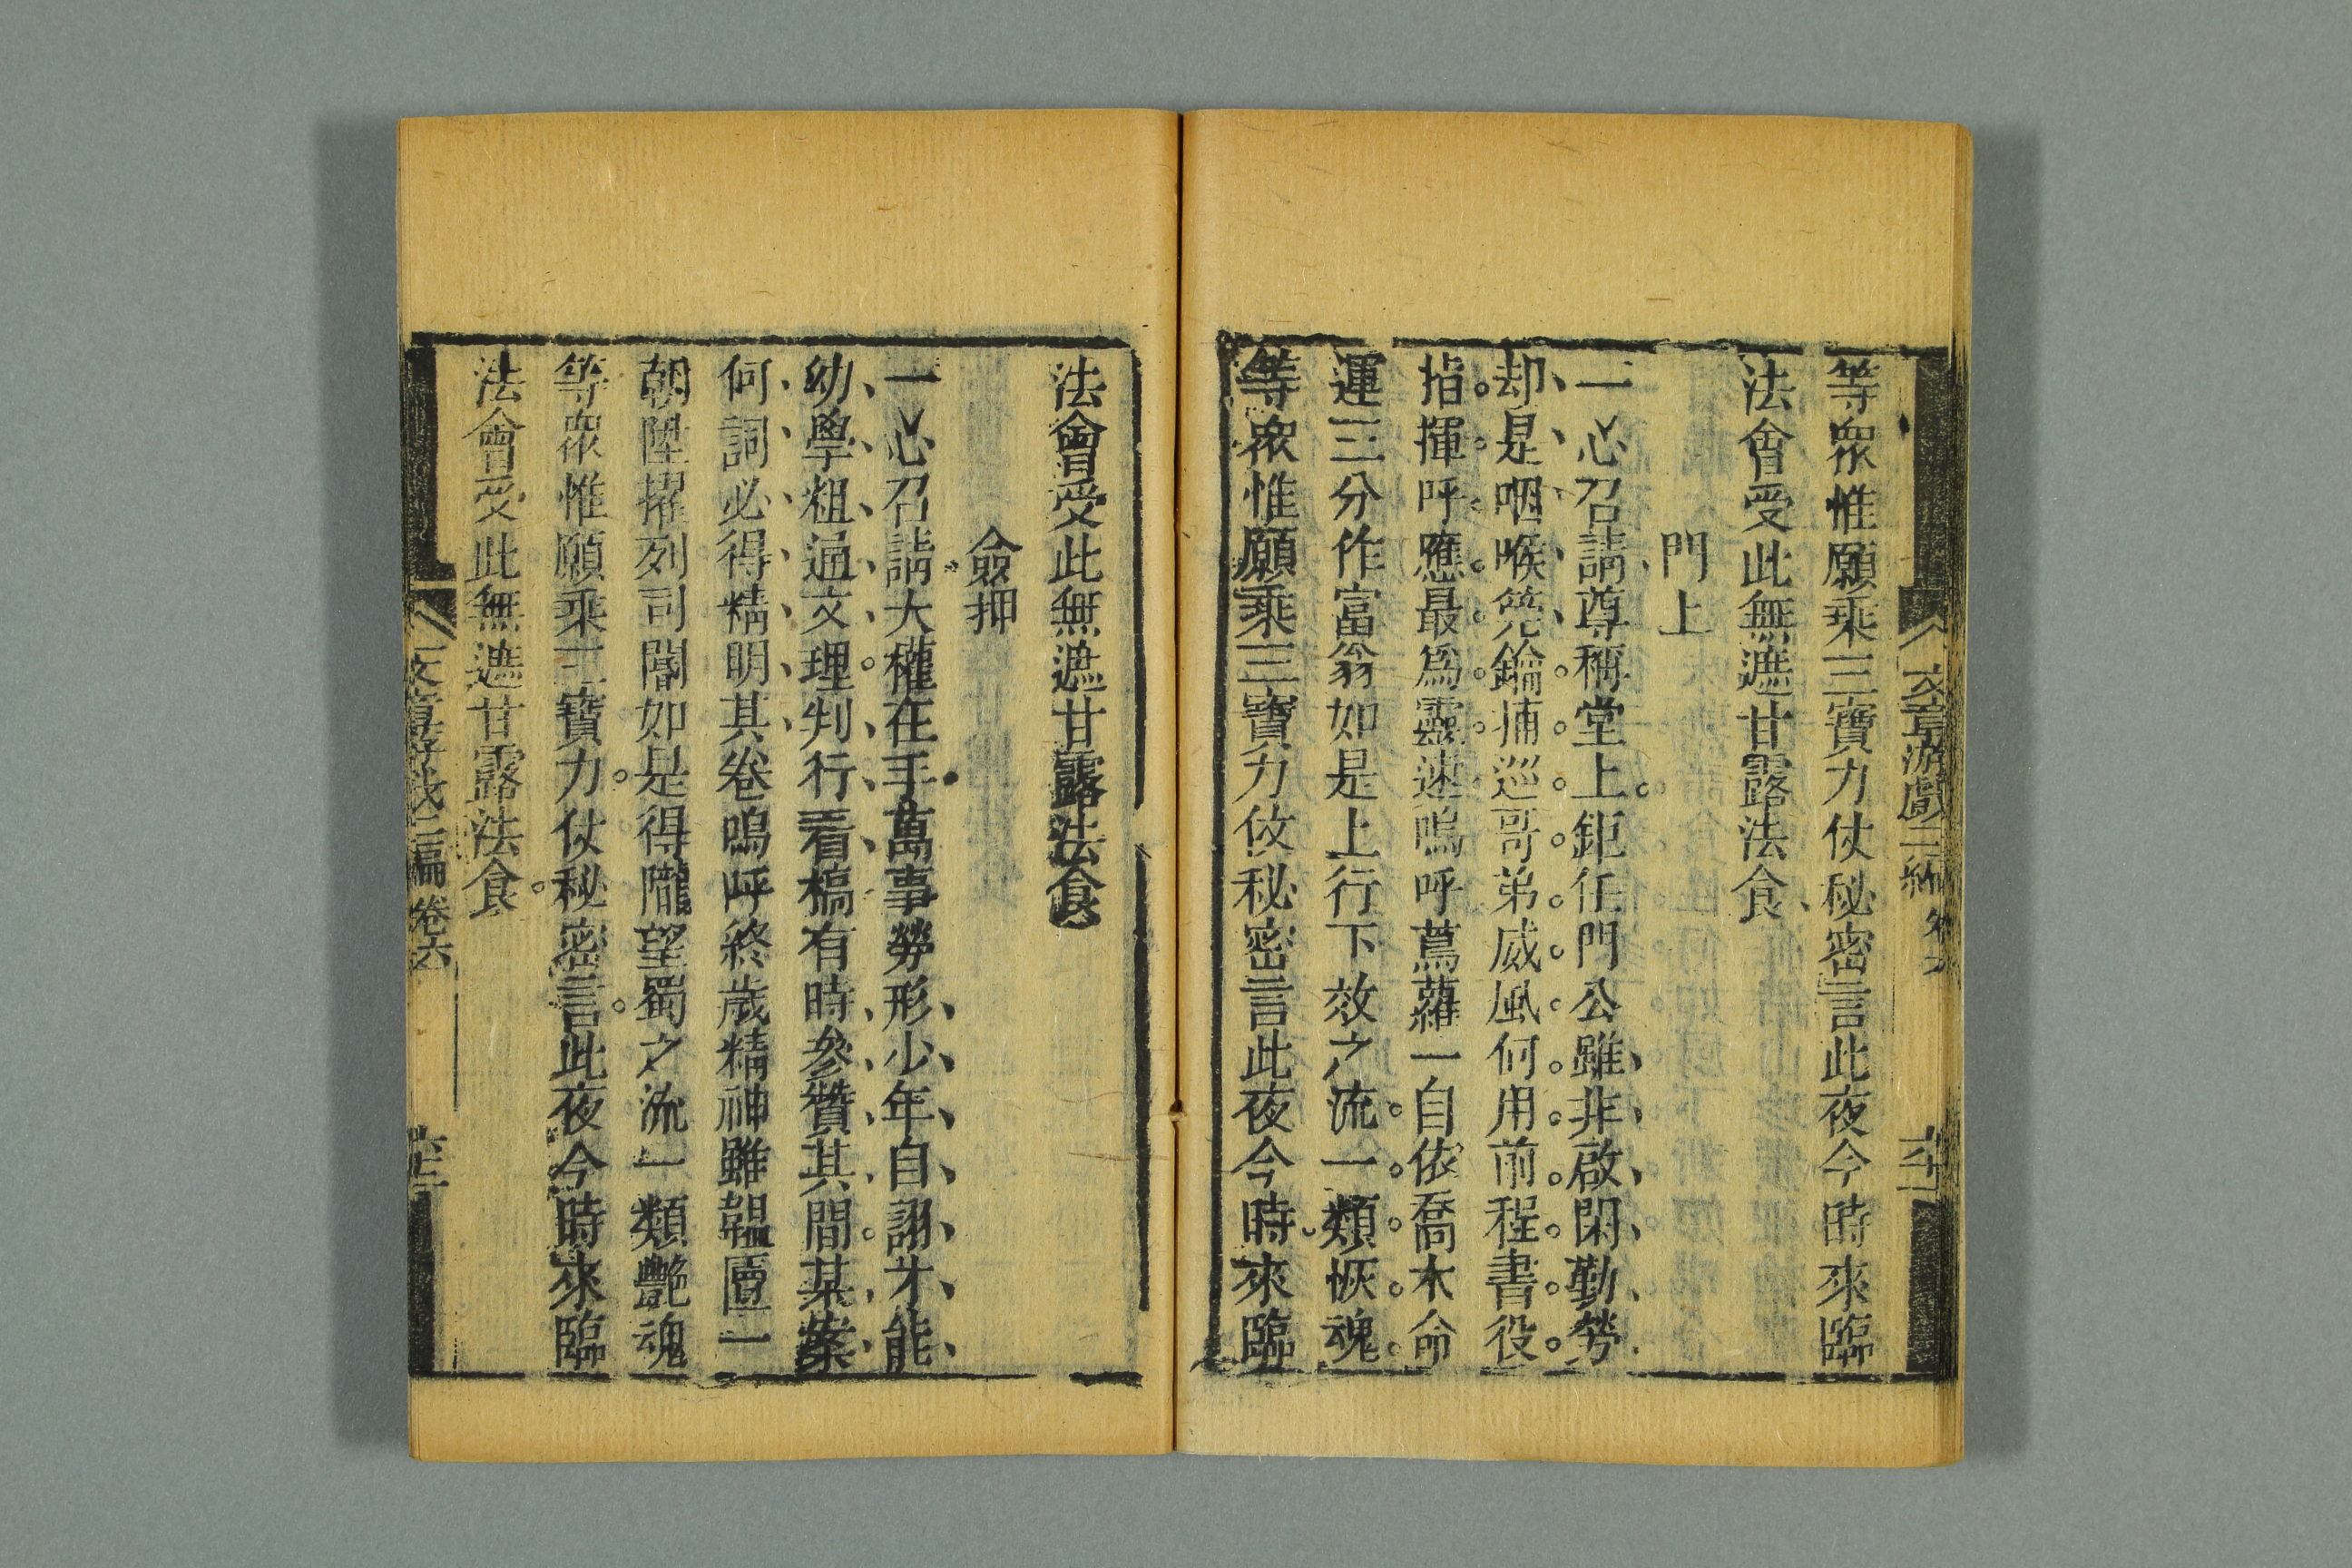 文章游戲二編
等衆惟願乘三寶力仗秘密言此夜今時來臨
法會受此無遮甘露法食
門上
一心召請尊稱堂上鉅任門公雖非啟閑勤勞
却是咽喉筦鑰捕巡哥弟威風何用前程書役
指揮呼應最爲靈速嗚呼蔦蘿一自依喬木命
運三分作富翁如是上行下效之流一類恢魂
等衆惟願乘三寶力仗秘密言此夜今時來臨
法會受此無遮甘露法食
僉押
一心召請大權在手萬事勞形少年自詡才能
幼學粗通文理判行看槁有時參贊其間某案
何詞必得精明其卷嗚呼終歲精神雖韞匵一
朝陞擢列司閽如是得隴望蜀之流一類艷魂
等衆惟願乘三寶力仗秘密言此夜今時來臨
法會受此無遮甘露法食
文章游戲二編 卷六